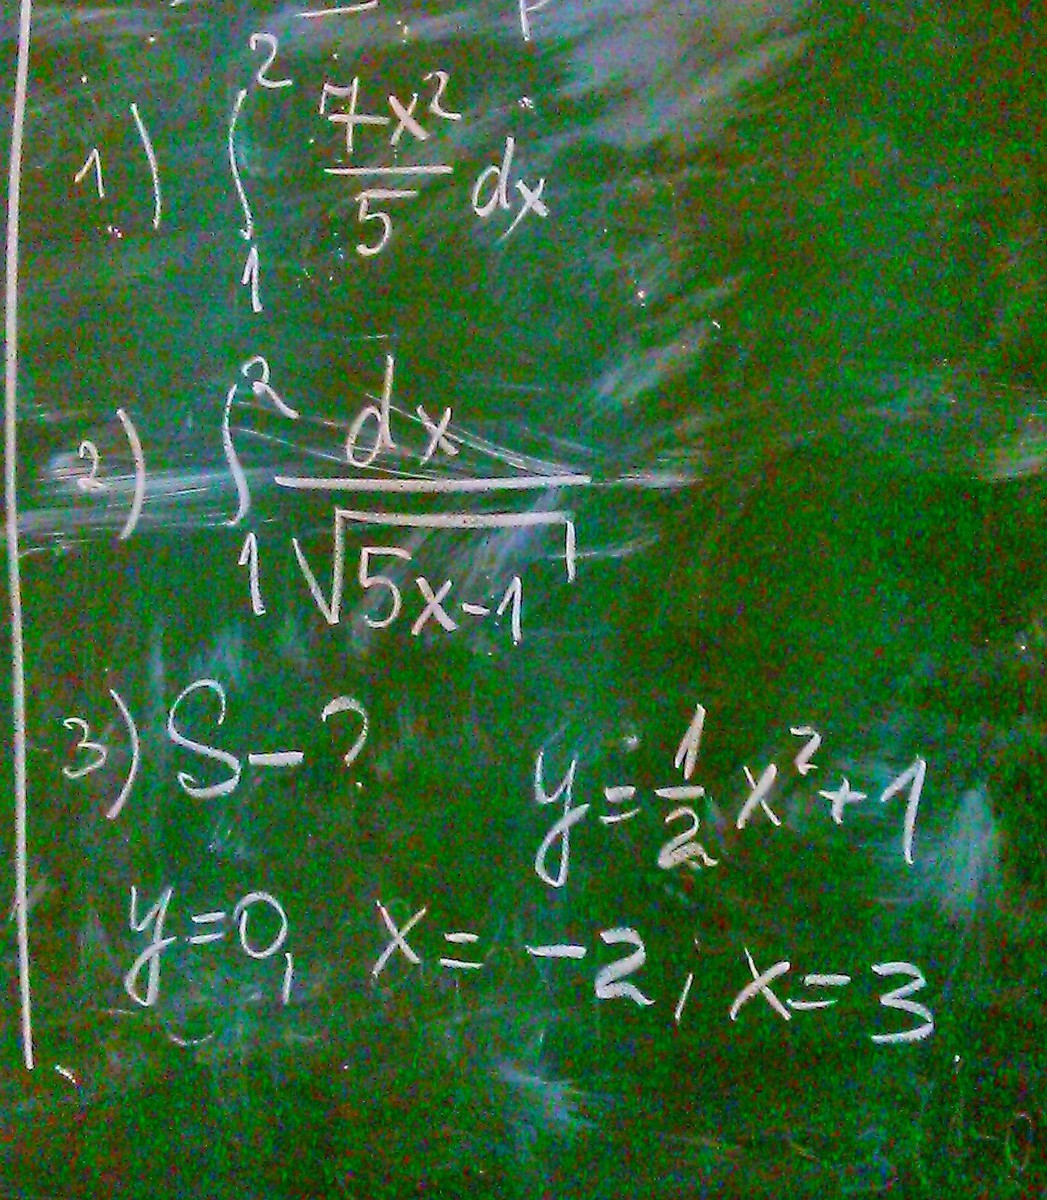 1) ∫₁² 7x²/5 dx
2) ∫₁² dx/√(5x-1)
3) S-? y=1/2 x²+1
y=0, x=-2, x=3